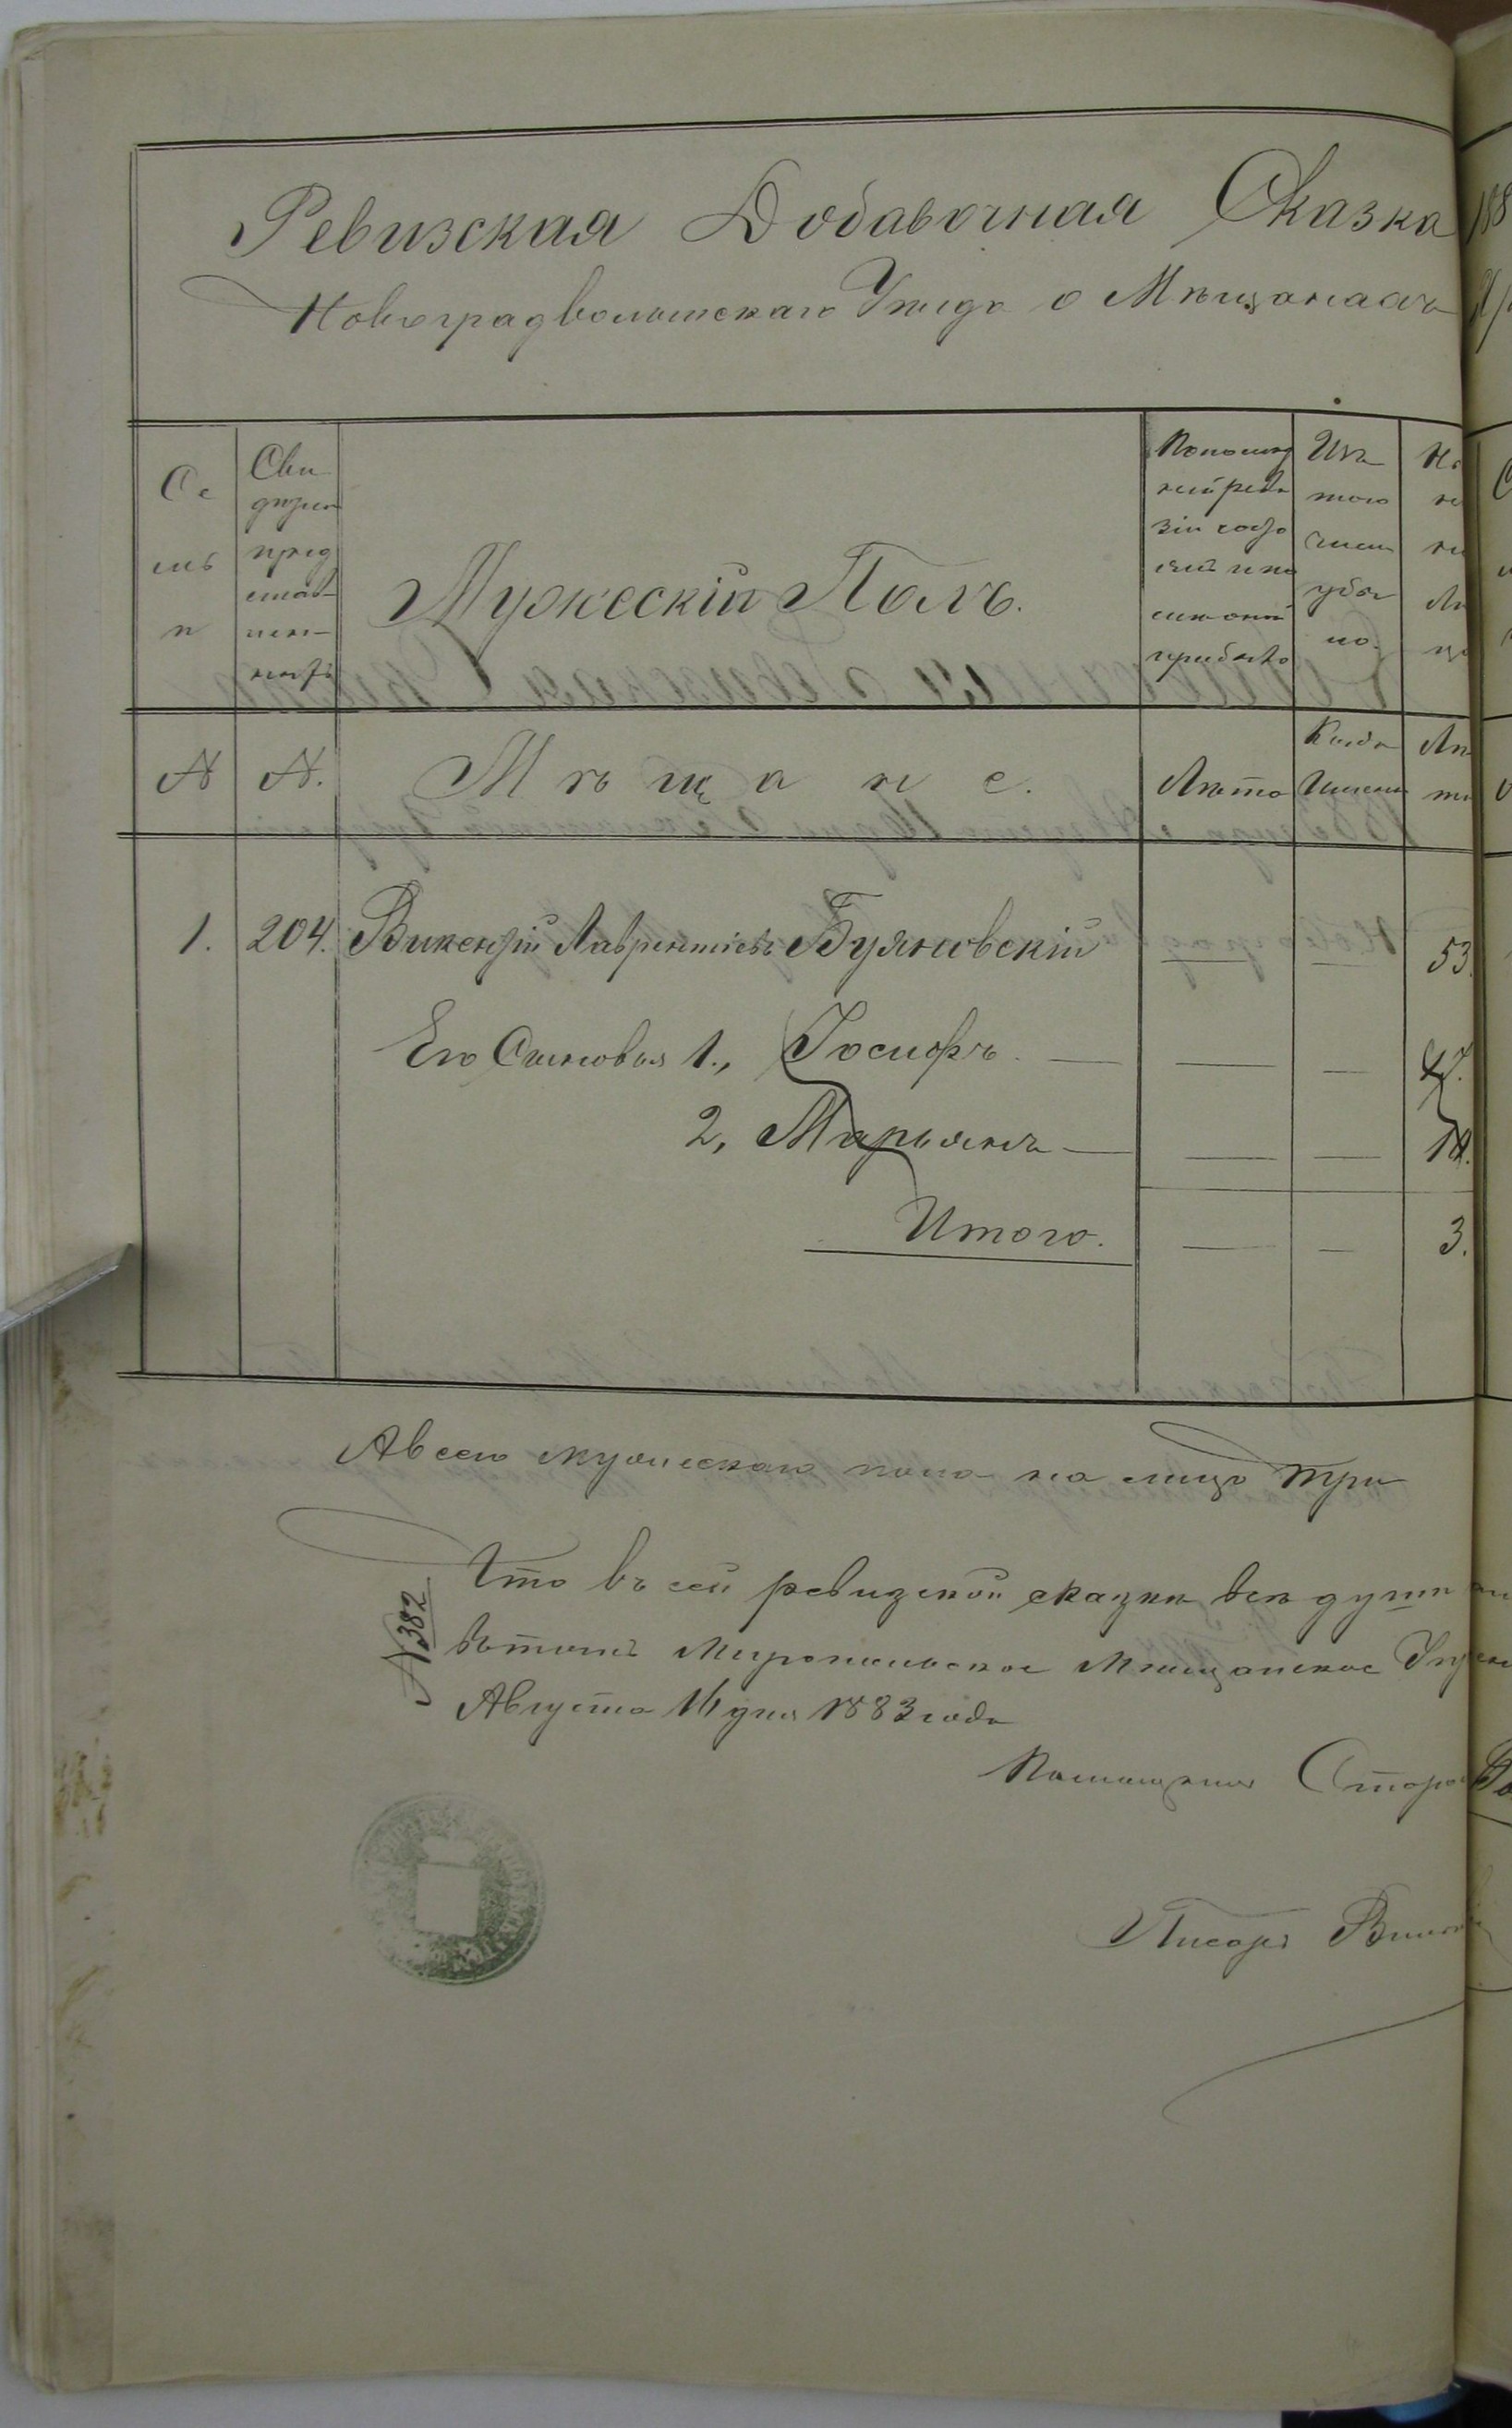 Ревизская Добавочная Сказка
Новоградволынскаго Уѣзда о Мѣщанахъ
Се
мь
и
Сви
дѣтел
пред
ставл
Мужескій Полъ.
По послед
ней реви
зіи состо
яло и по
сле оной
прибыло
Изъ
того
числа
убы
ло.
На
Ли
цо
№
№.
Мѣщане.
Лѣта
Когда
Именно
Лѣ
та
1.
204.
Викентій Лаврентіевъ Буяновскій
53.
Его Сыновья 1., Іосифъ
17.
2, Марьянъ
14.
Итого.
3.
А всего мужескаго пола на лицо три
№ 382
Что въ сей ревизской сказкѣ всѣ души
въ томъ Миропольское Мѣщанское
Августа 16 дня 1883 года
Помощникъ Старо
Писарь